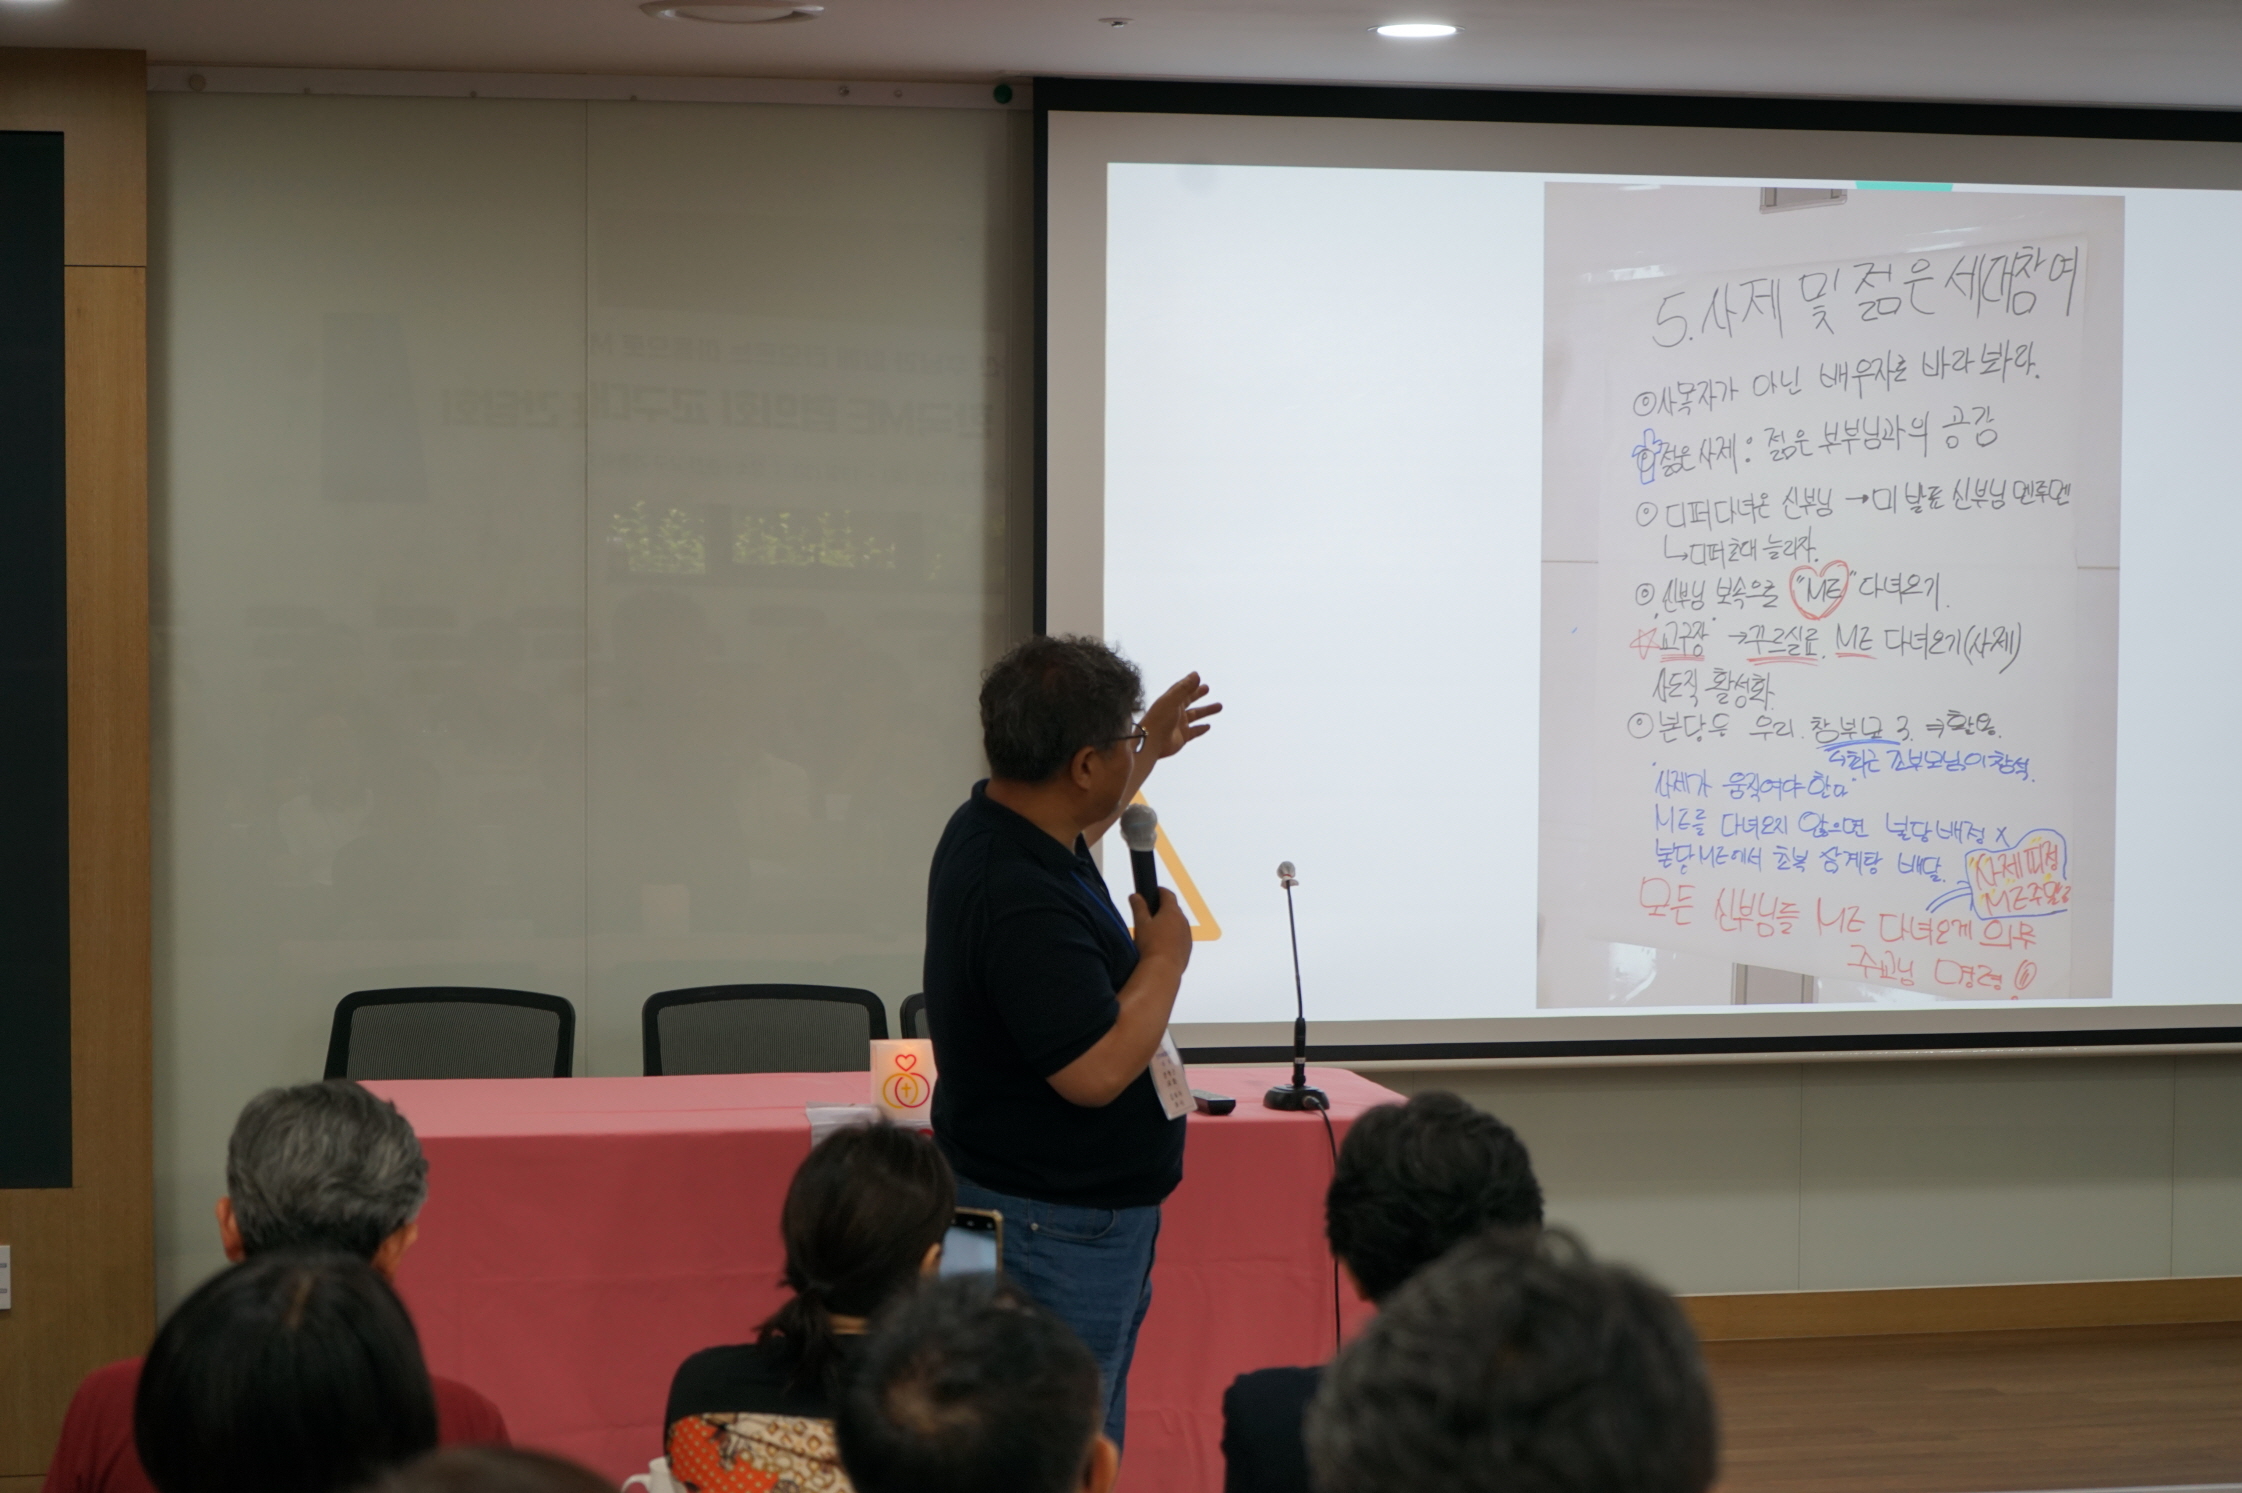 5. 사제 및 젊은 세대 참여
◎ 사목자가 아닌 배우자로 바라봐라.
젊은 사제 : 젊은 부부님과의 공감
◎ 디퍼 다녀온 신부님 → 미 발표 신부님 멘토멘
↳ 디퍼 초대 늘리자.
◎ 신부님 보속으로 "ME" 다녀오기.
☆ 교구장 → 꾸르실료, ME 다녀오기(사제)
사도직 활성화.
◎ 본당 등 우리. 창부보 3. ⇒ 활용.
↳ 최근 조부모님이 참석.
사제가 움직여야 한다.
ME를 다녀오지 않으면 본당 배정 X
본당 ME에서 초복 삼계탕 배달.
사제피정
ME주말로
모든 신부님들 ME 다녀오게 의무
주교님 명령